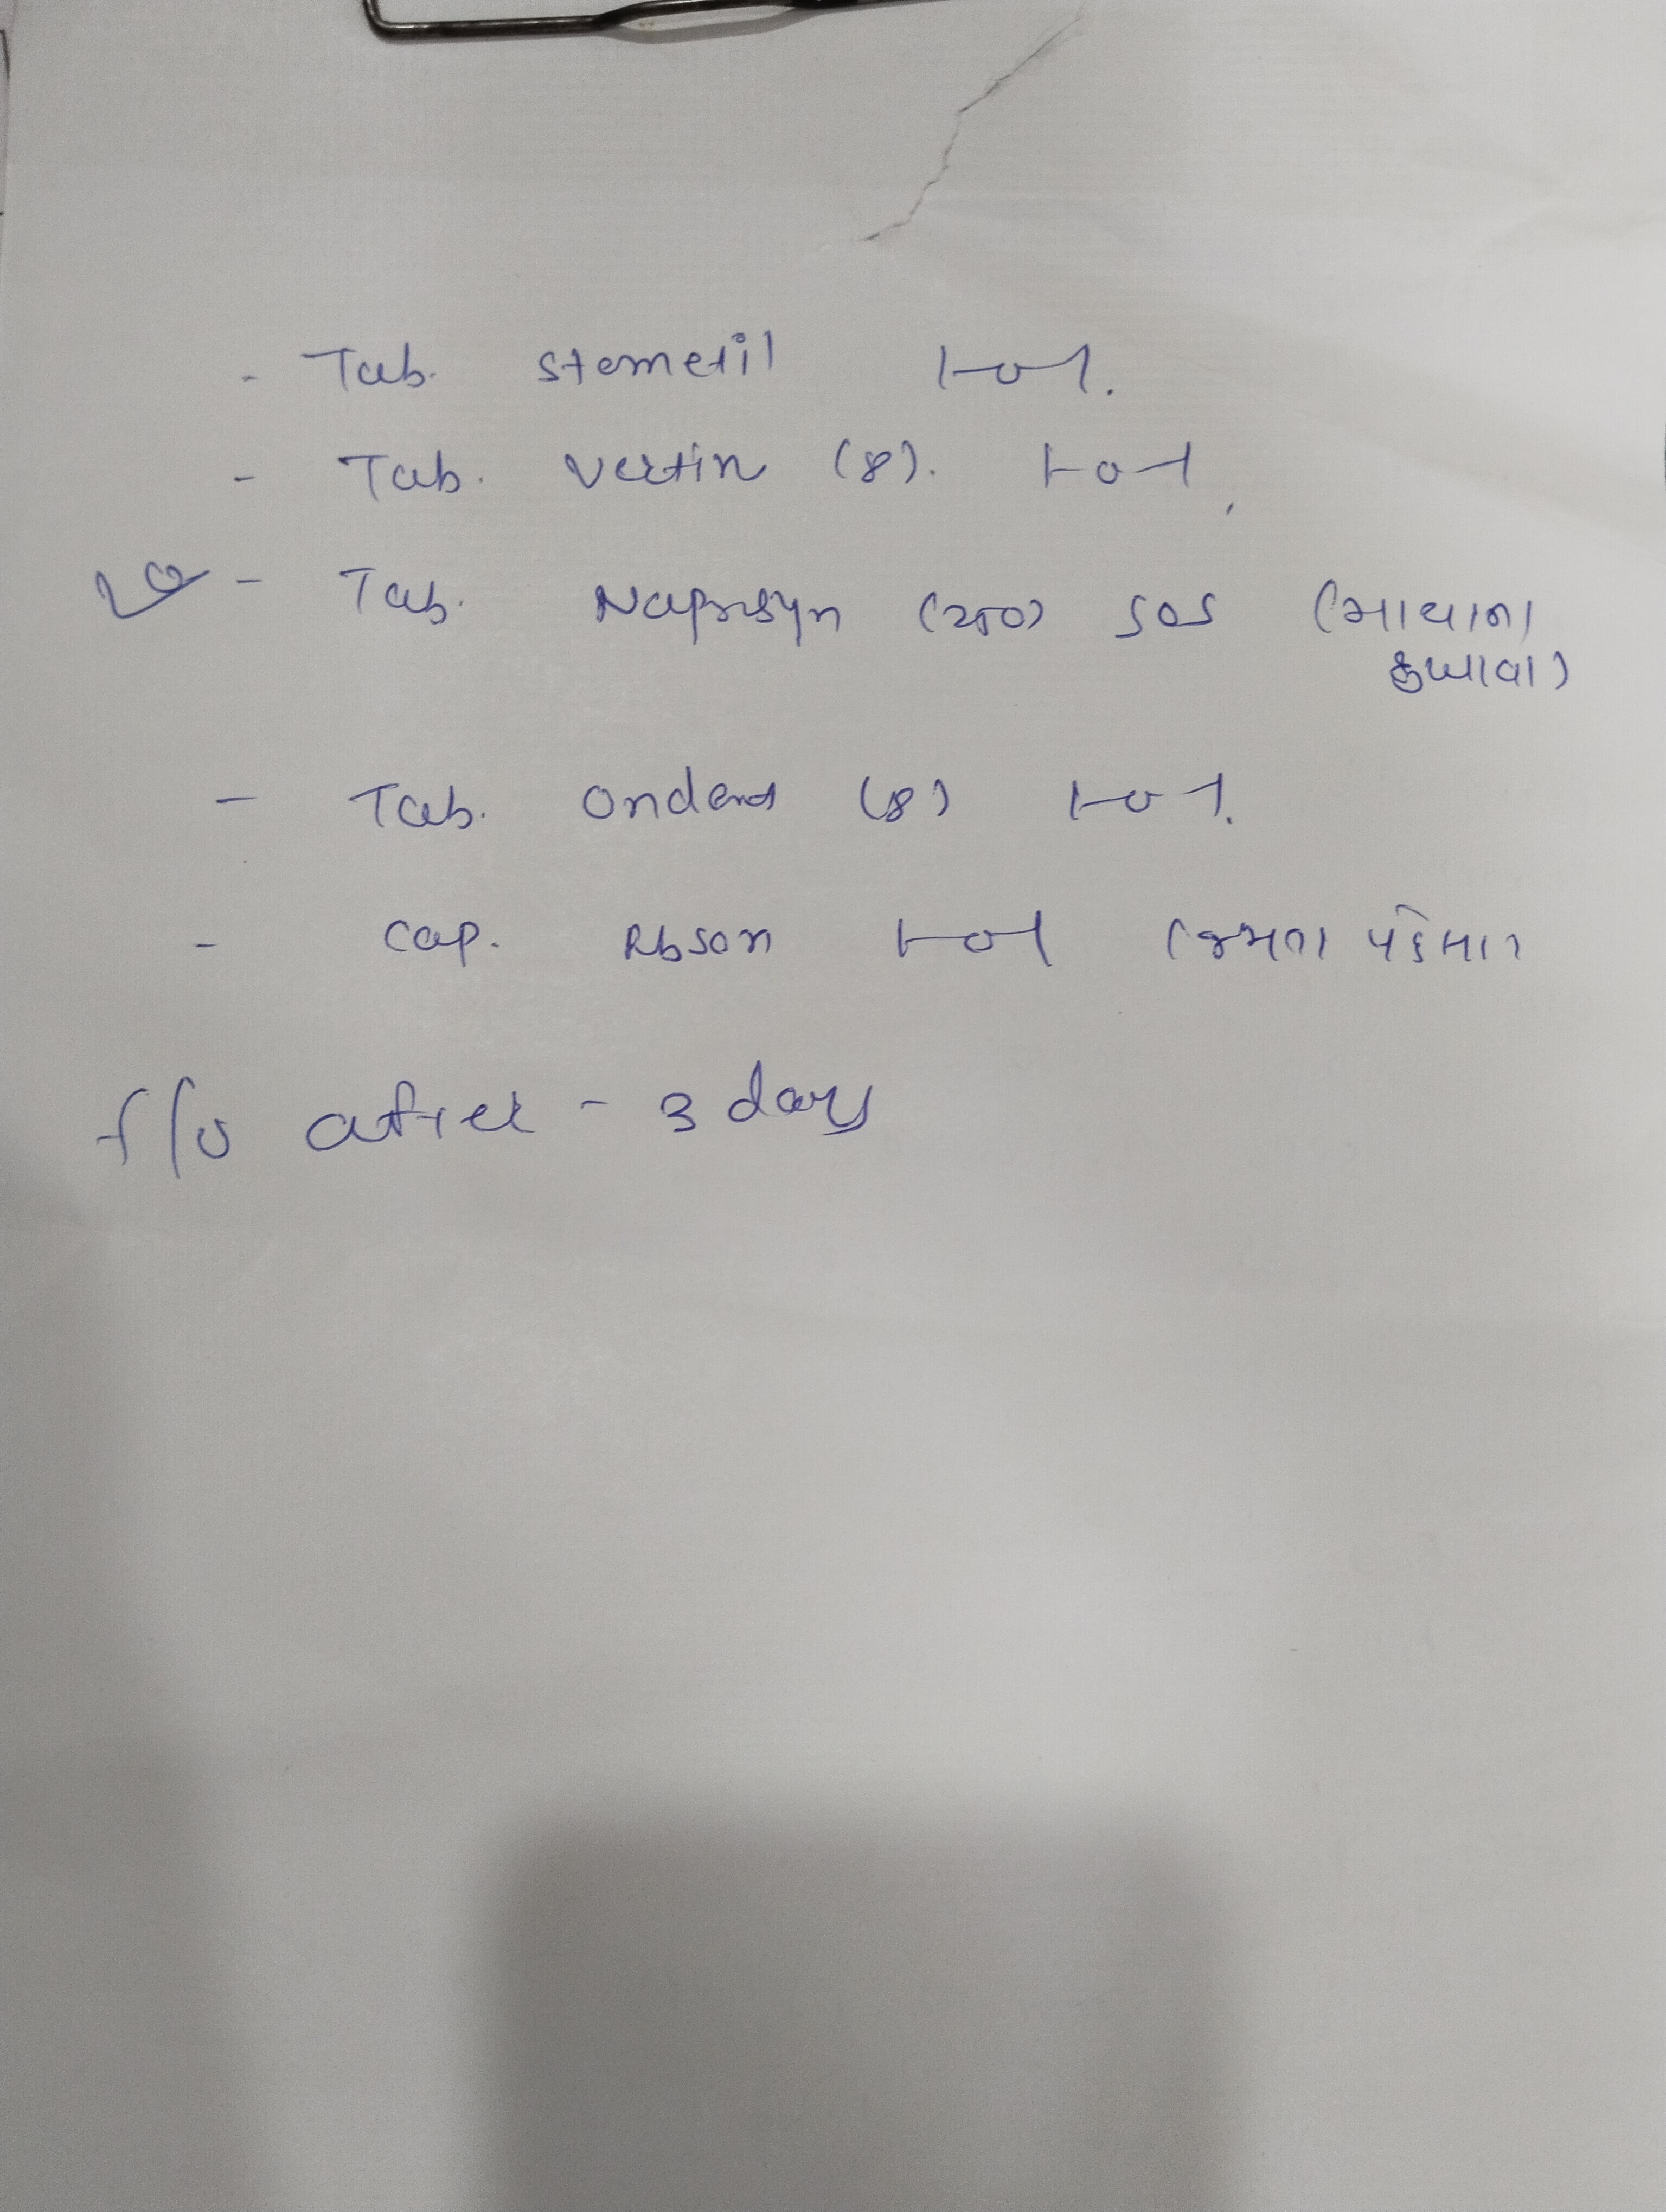 - Tab. stemetil 1-0-1.
- Tab. vertin (8). 1-0-1,
- Tab. Naprosyn (250) SOS (માથાના
દુખાવા)
- Tab. Ondem (8) 1-0-1.
- Cap. Rbson 1-0-1 (જમતા પહેલાં
f/u after - 3 days